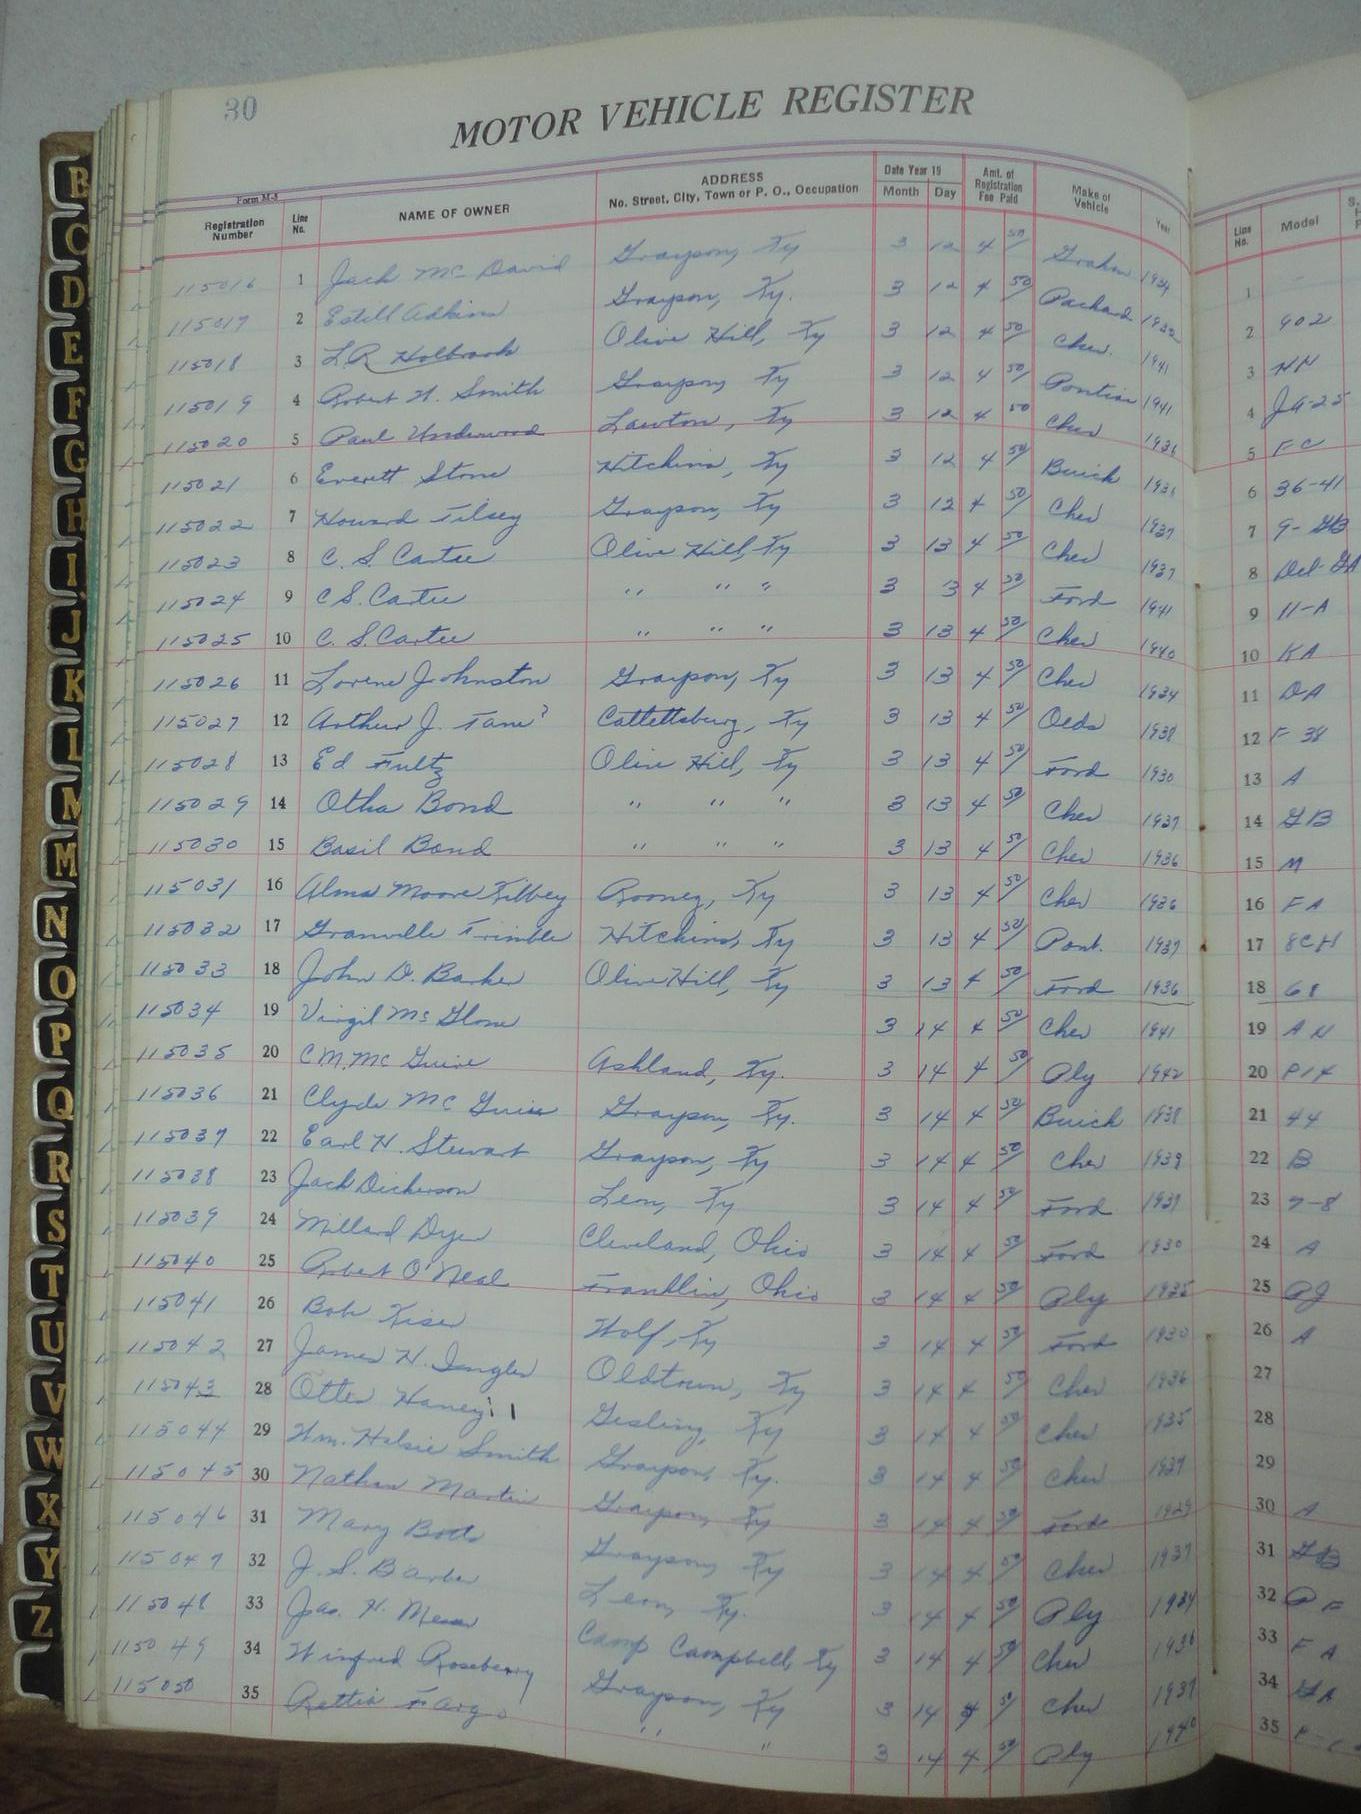 30
MOTOR VEHICLE REGISTER
Form M-5
Registration Number Line No. NAME OF OWNER ADDRESS No. Street, City, Town or P. O., Occupation Date Year 19 Month Day Amt. of Registration Fee Paid Make of Vehicle Year Line No. Model
115016 1 Jack McDavid Grayson, Ky 3 12 4 50 Graham 1934 1
115017 2 Estill Adkins Grayson, Ky. 3 12 4 50 Packard 1932 2 902
115018 3 L.R. Holbrook Olive Hill, Ky 3 12 4 50 Chev. 1941 3
115019 4 Robert H. Smith Grayson, Ky 3 12 4 50 Pontiac 1941 4 JA-25
115020 5 Paul Underwood Lawton, Ky 3 12 4 50 Chev 1936 5 FC
115021 6 Everett Stone Hitchins, Ky 3 12 4 50 Buick 1936 6 36-41
115022 7 Howard Tilsey Grayson, Ky 3 12 4 50 Chev 1937 7
115023 8 C. S. Cartee Olive Hill, Ky 3 13 4 50 Chev 1937 8
115024 9 C.S. Cartee " " " 3 3 4 50 Ford 1941 9 11-A
115025 10 C. S. Cartee " " " 3 13 4 50 Chev 1940 10 KA
115026 11 Lorene Johnston Grayson, Ky 3 13 4 50 Chev 1934 11 DA
115027 12 Arthur J. Tane? Cattettsburg, Ky 3 13 4 50 Olds 1938 12 F 38
115028 13 Ed Fultz Olive Hill, Ky 3 13 4 50 Ford 1930 13 A
115029 14 Otha Bond " " " 3 13 4 50 Chev 1937 14 GB
115030 15 Basil Bond " " " 3 13 4 50 Chev 1936 15 M
115031 16 Alma Moore Kilbey Rooney, Ky 3 13 4 50 Chev 1936 16 FA
115032 17 Granville Trimble Hitchins, Ky 3 13 4 50 Pont. 1937 17 8CH
115033 18 John D. Barker Olive Hill, Ky 3 13 4 50 Ford 1936 18 68
115034 19 Virgil McGlone 3 14 4 50 Chev 1941 19 AH
115035 20 C.M. McGuire Ashland, Ky. 3 14 4 50 Ply 1942 20 P14
115036 21 Clyde McGuire Grayson, Ky. 3 14 4 50 Buick 1938 21 44
115037 22 Earl H. Stewart Grayson, Ky 3 14 4 50 Chev 1939 22 B
115038 23 Jack Dickerson Leon, Ky 3 14 4 50 Ford 1937 23 7-8
115039 24 Millard Dyer Cleveland, Ohio 3 14 4 50 Ford 1930 24 A
115040 25 Robert O'Neal Franklin, Ohio 3 14 4 50 Ply 1935 25 PJ
115041 26 Bob Kiser Wolf, Ky 3 14 4 50 Ford 1930 26 A
115042 27 James H. Oldtown, Ky 3 14 4 50 Chev 1936 27
115043 28 Otto Haney Gesling, Ky 3 14 4 50 Chev 1935 28
115044 29 Wm. Halsie Smith Grayson, Ky. 3 14 4 50 Chev 1937 29
115045 30 Nathan Martin Grayson, Ky 3 14 4 50 Ford 1929 30 A
115046 31 Mary Botts Grayson, Ky 3 14 4 50 Chev 1937 31 GB
115047 32 J. S. Barber Leon, Ky. 3 14 4 50 Ply 1934 32 PF
115048 33 Jas. H. Camp Campbell, Ky 3 14 4 50 Chev 1936 33 FA
115049 34 Winfred Roseberry Grayson, Ky 3 14 4 50 Chev 1937 34 GA
115050 35 Rettia Fargo " " 3 14 4 50 Ply 1940 35
B
C
D
E
F
G
H
I
J
K
L
M
M
N
O
P
Q
R
S
T
U
V
W
X
Y
Z